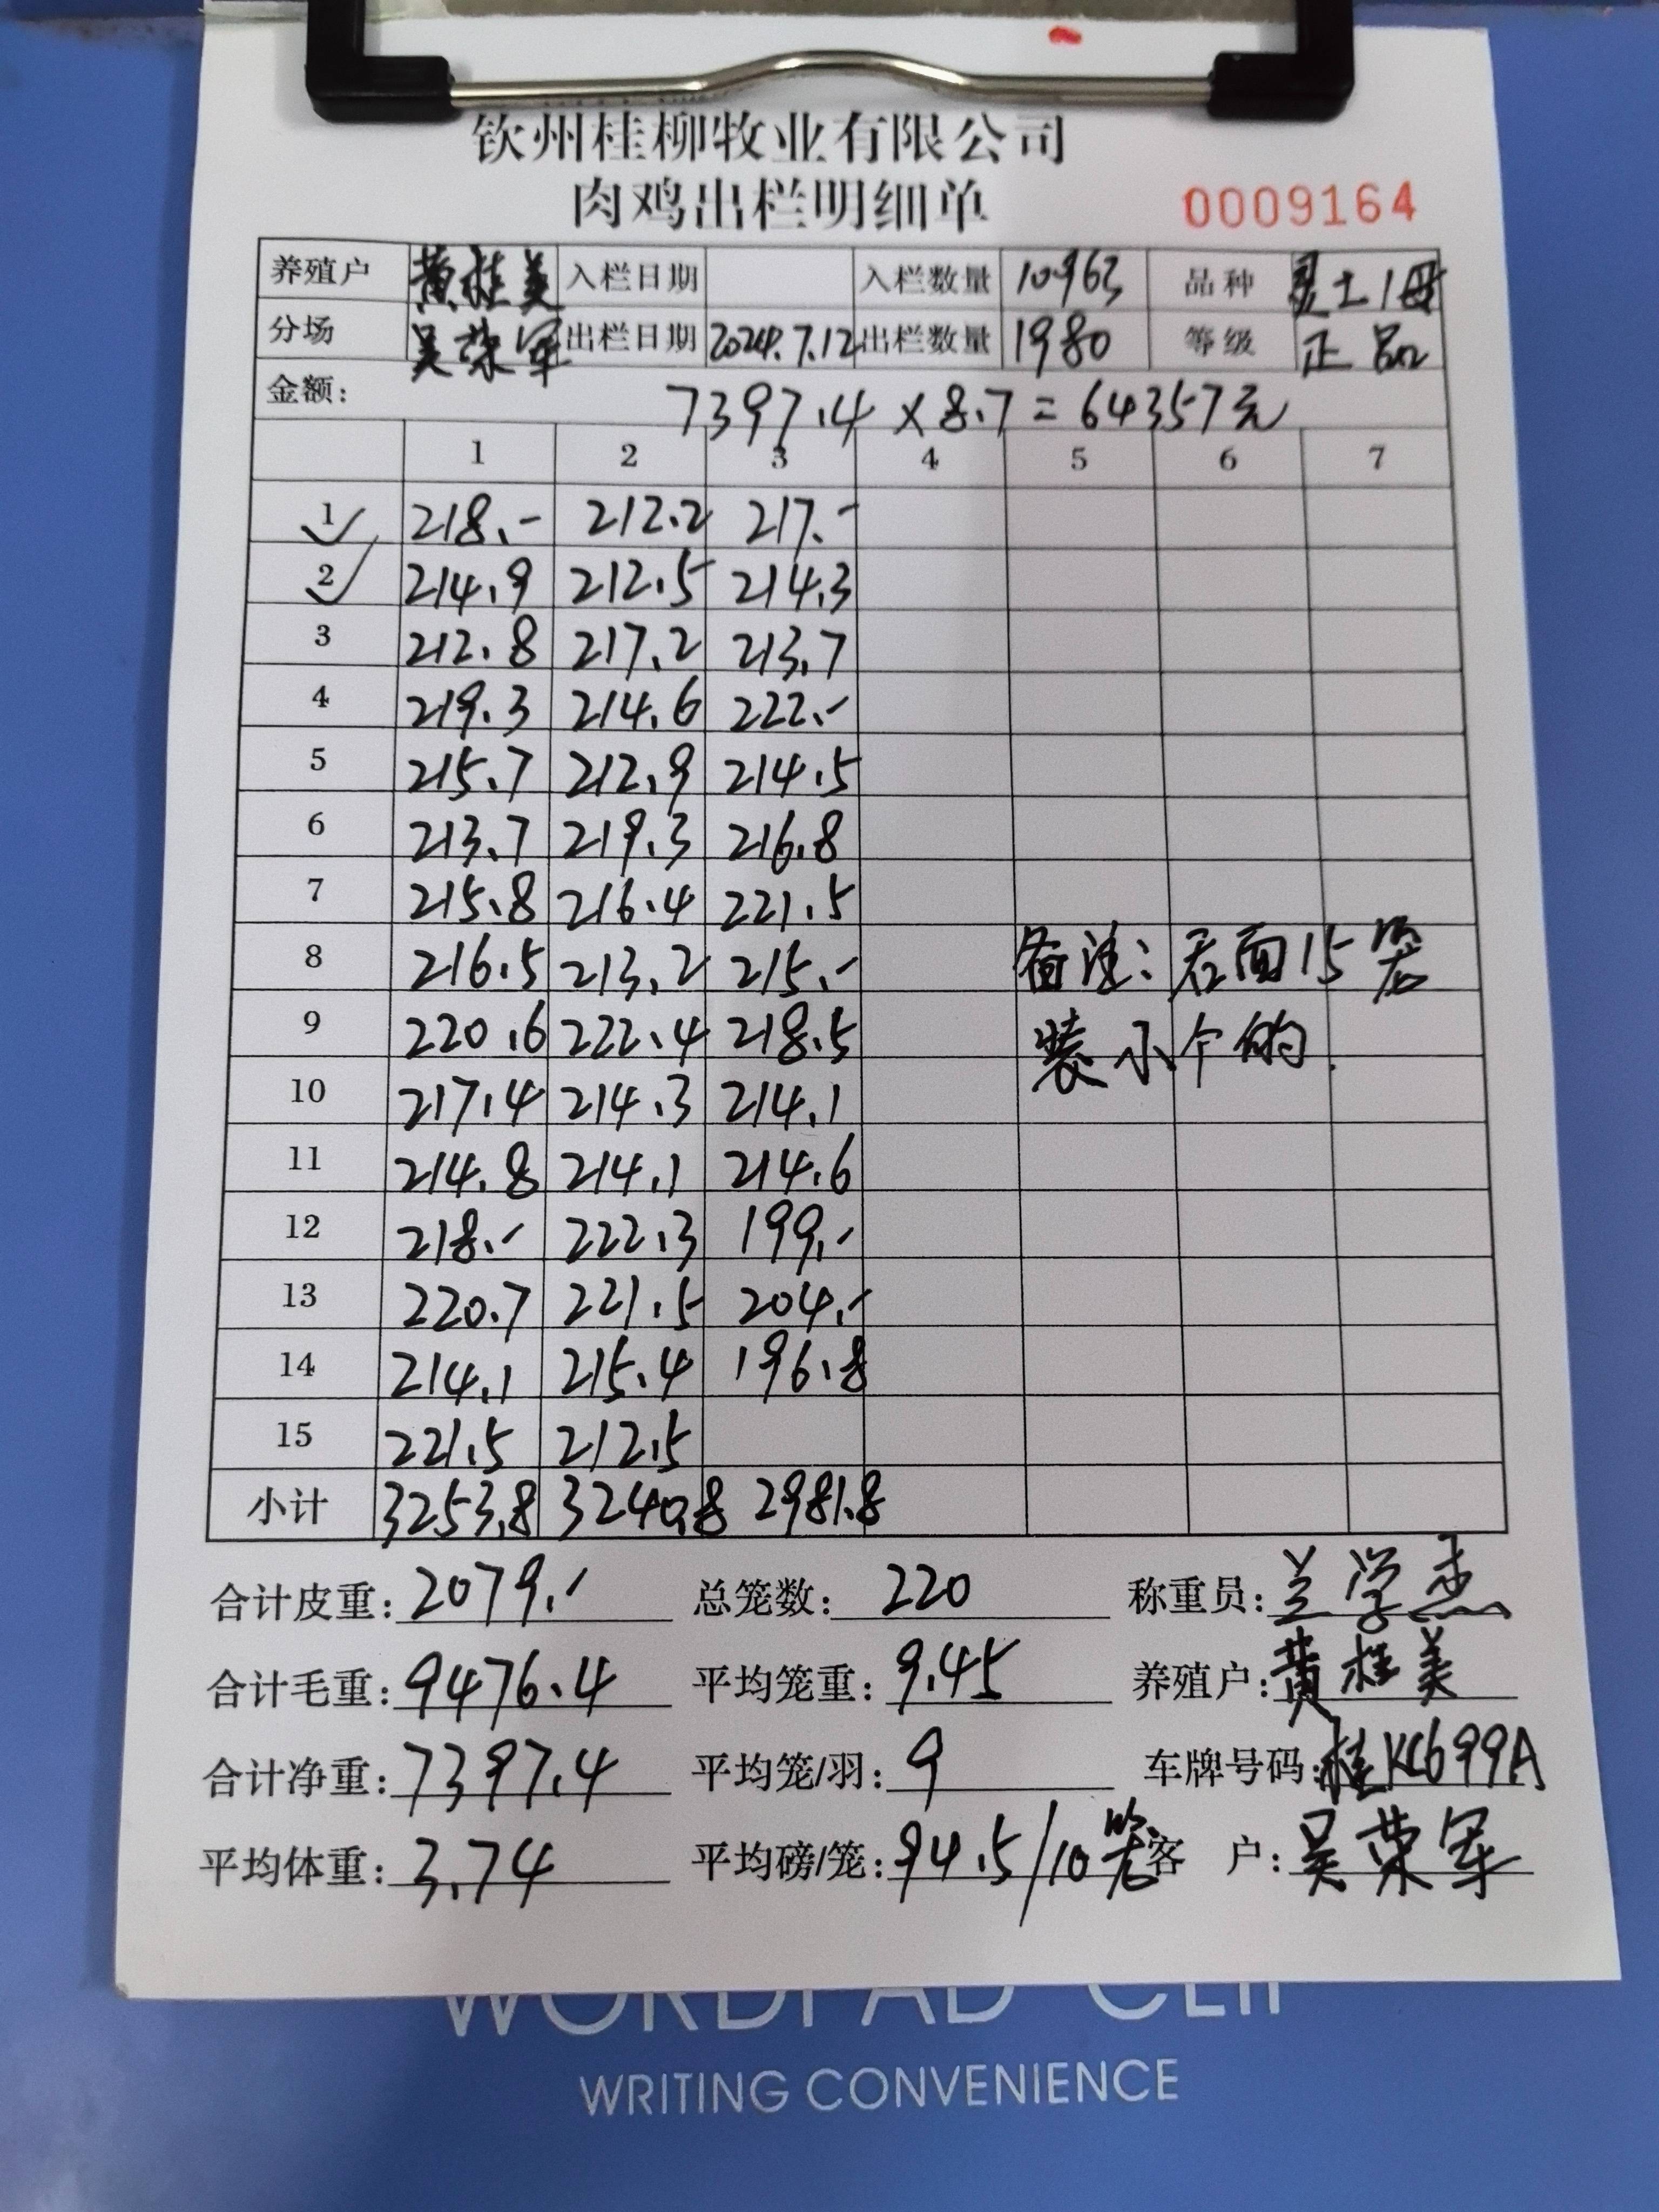 钦州桂柳牧业有限公司
肉鸡出栏明细单 0009164
养殖户 黄桂美 入栏日期 入栏数量 10963 品种 灵土1母
分场 吴荣军 出栏日期 2024.7.12 出栏数量 1980 等级 正品
金额: 7397.4×8.7=64357元
1 2 3 4 5 6 7
1 218.- 212.2 217.-
2 214.9 212.5 214.3
3 212.8 217.2 213.7
4 219.3 214.6 222.-
5 215.7 212.9 214.5
6 213.7 219.3 216.8
7 215.8 216.4 221.5
8 216.5 213.2 215.- 备注:后面15笼
9 220.6 222.4 218.5 装小个的.
10 217.4 214.3 214.1
11 214.8 214.1 214.6
12 218.- 222.3 199.-
13 220.7 221.5 204.-
14 214.1 215.4 196.8
15 221.5 212.5
小计 3253.8 3240.8 2981.8
合计皮重: 2079.- 总笼数: 220 称重员: 兰学杰
合计毛重: 9476.4 平均笼重: 9.45 养殖户: 黄桂美
合计净重: 7397.4 平均笼/羽: 9 车牌号码: 桂KC699A
平均体重: 3.74 平均磅/笼: 94.5/10笼 客户: 吴荣军
WORDPAD CLIP
WRITING CONVENIENCE